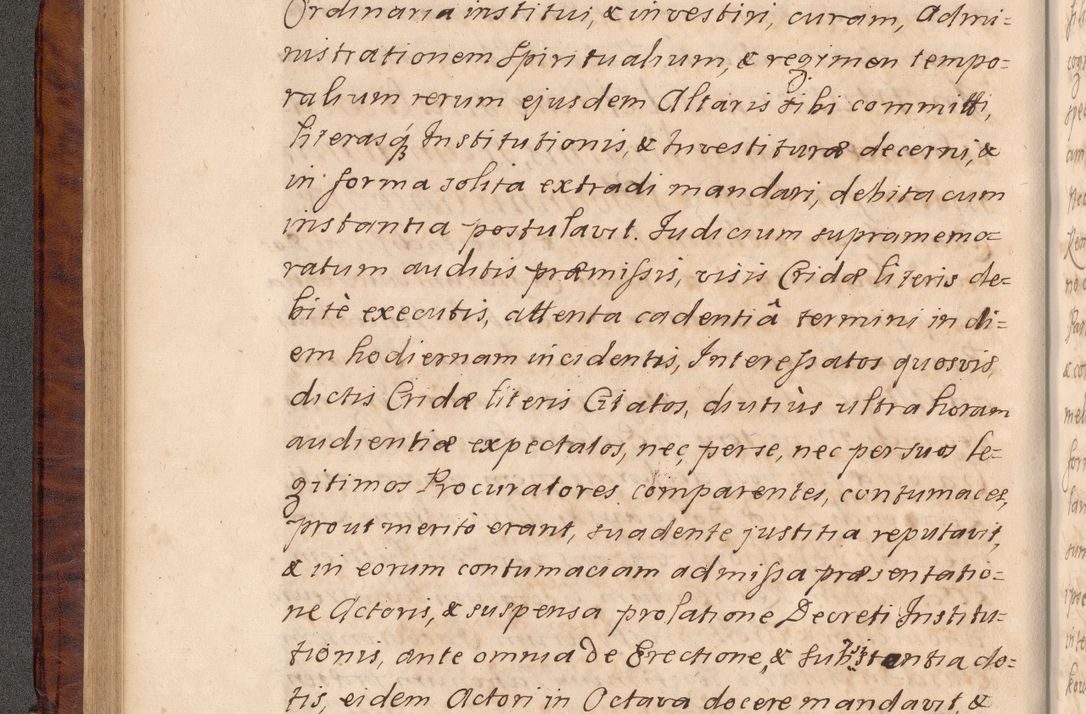 Ordinaria institui, & investiri, curam, Admi=
nistrationem Spiritualium, & regimen tempo=
ralium rerum ejusdem Altaris sibi committi,
literasq́ꝫ Institutionis, & Investituræ decerni, &
in forma solita extradi mandari, debita cum
instantia postulavit. Judicium supramemo=
ratum auditis præmiſsis, visis Cridæ literis de=
bitè executis, attenta cadentiâ termini in di=
em hodiernam incidentis, Intereſsatos quosvis,
dictis Cridæ literis Citatos, diutiùs ultra horam
audientiæ expectatos, nec, per se, nec per suos le=
gitimos Procuratores comparentes, contumaces,
prout meritò erant, suadente justitia reputavit,
& in eorum contumaciam admiſsa præsentatio=
ne Actoris, & suspensa prolatione Decreti Institu=
tionis, ante omnia de Erectione, & Substantia do=
tis, eidem Actori in Octava docere mandavit, &